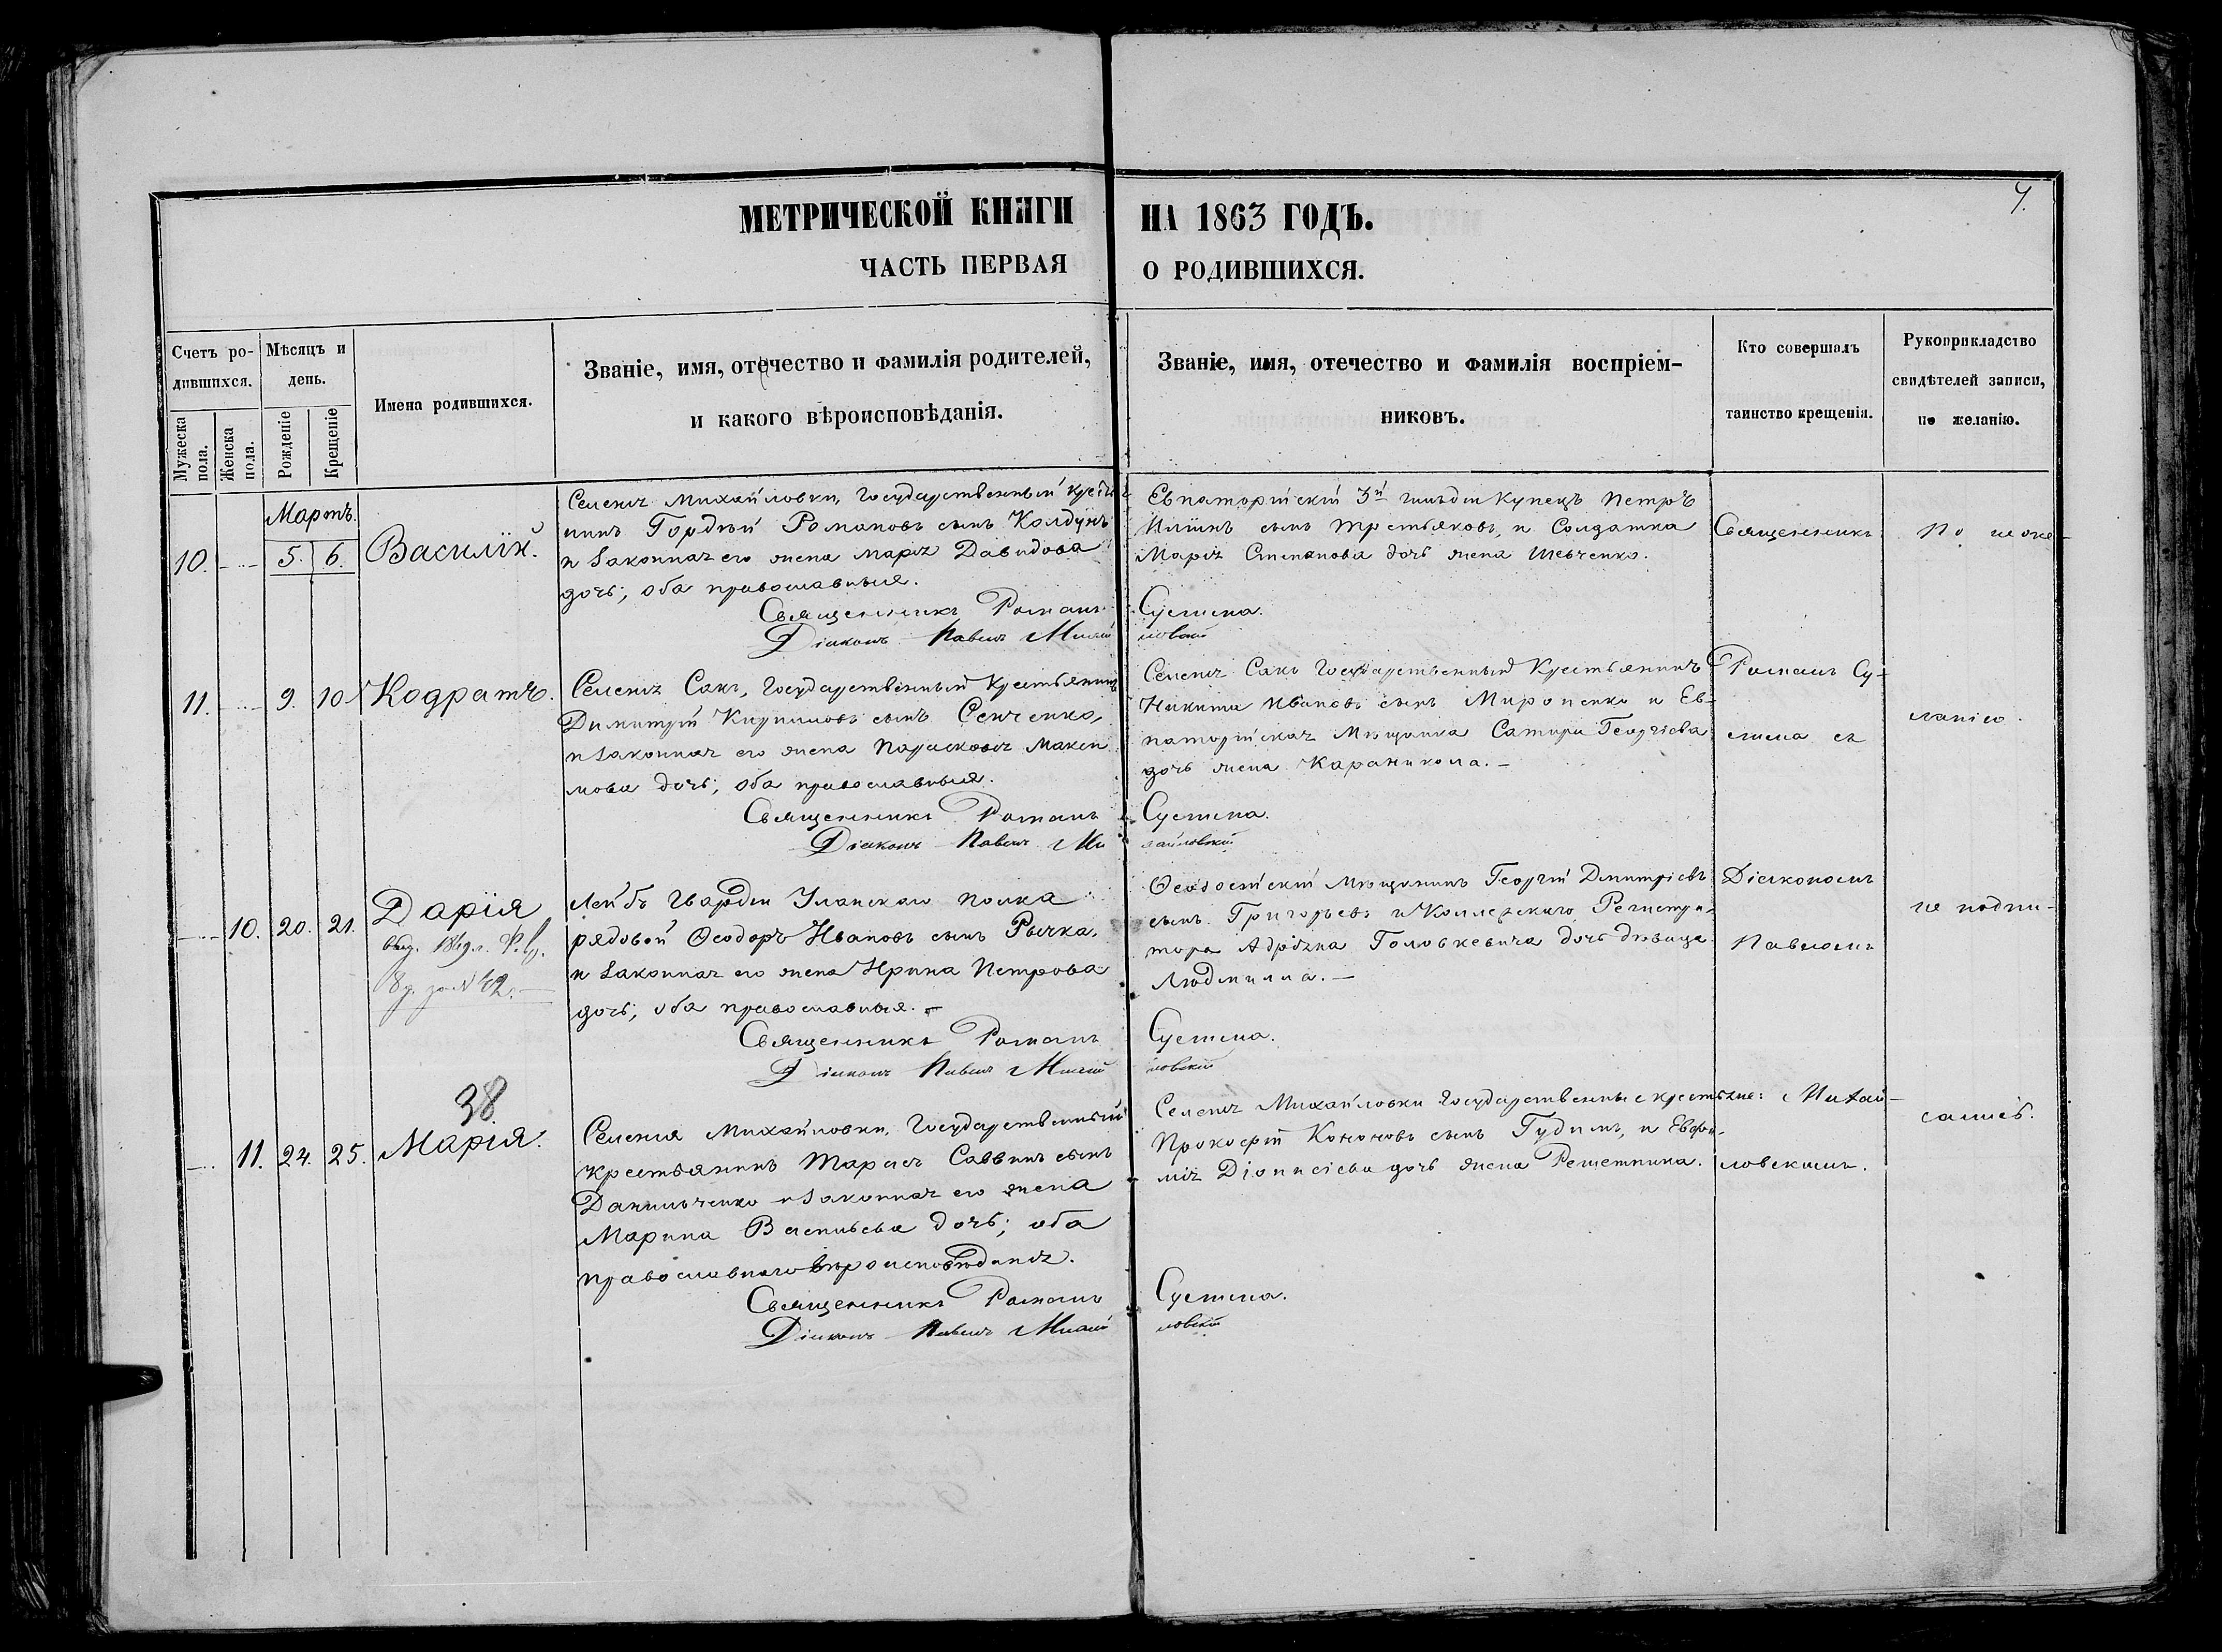 7.
МЕТРИЧЕСКОЙ КНИГИ НА 1863 ГОДЪ.
ЧАСТЬ ПЕРВАЯ О РОДИВШИХСЯ.
Счетъ ро-
дившихся.
Мужеска пола.
Женска пола.
Мѣсяцъ и
день.
Рожденіе
Крещеніе
Имена родившихся.
Званіе, имя, отечество и фамилія родителей,
и какого вѣроисповѣданія.
Званіе, имя, отечество и фамилія воспріем-
никовъ.
Кто совершалъ
таинство крещенія.
Рукоприкладство
свидѣтелей записи,
по желанію.
Мартъ.
10. 5. 6. Василій.
Селенія Михайловки, Государственный крестья
нинъ Гордѣй Романовъ сынъ Колдунъ
и законная его жена Марія Давидова
дочь; оба православныя.
Евпаторійскій 3й гильдіи Купецъ Петръ
Ильинъ сынъ Третьяковъ, и Солдатка
Марія Степанова дочь жена Шевченко.
Священникъ Романъ Суетина.
Діаконъ Павелъ Михайловскій
Священникъ
По неже-
11. 9. 10. Кодратъ.
Селенія Сакъ, Государственный Крестьянинъ
Димитрій Кириловъ сынъ Сенченко,
и законная его жена Параскевія Макси
мова дочь; оба православныя.
Селенія Сакъ Государственный Крестьянинъ
Никита Ивановъ сынъ Мироненко и Ев-
паторійская Мѣщанка Сатира Георгіева
дочь жена Караникола. —
Священникъ Романъ Суетина.
Діаконъ Павелъ Михайловскій
Романъ Су-
етина съ
ланію.
10. 20. 21. Дарія
выд. 1869 г.
за № 42. —
Лейбъ Гвардіи Уланскаго полка
рядовой Ѳеодоръ Ивановъ сынъ Рычка,
и законная его жена Ирина Петрова
дочь; оба православныя. —
Ѳеодосійскій Мѣщанинъ Георгій Димитріевъ
сынъ Григорьевъ и Коллежскаго Регистра-
тора Адріана Головкевича дочь дѣвица
Людмилла. —
Священникъ Романъ Суетина.
Діаконъ Павелъ Михайловскій
Діакономъ
Павломъ
не подпи-
38.
11. 24. 25. Марія.
Селенія Михайловки, Государственный
крестьянинъ Тарасъ Саввинъ сынъ
Данильченко и законная его жена
Марина Васильева дочь; оба
православнаго вѣроисповѣданія.
Селенія Михайловки Государственные крестьяне:
Прокофій Кононовъ сынъ Гудимъ, и Евфи-
мія Діонисіева дочь жена Решетника.
Священникъ Романъ Суетина.
Діаконъ Павелъ Михайловскій
Михай-
ловскимъ.
сались.